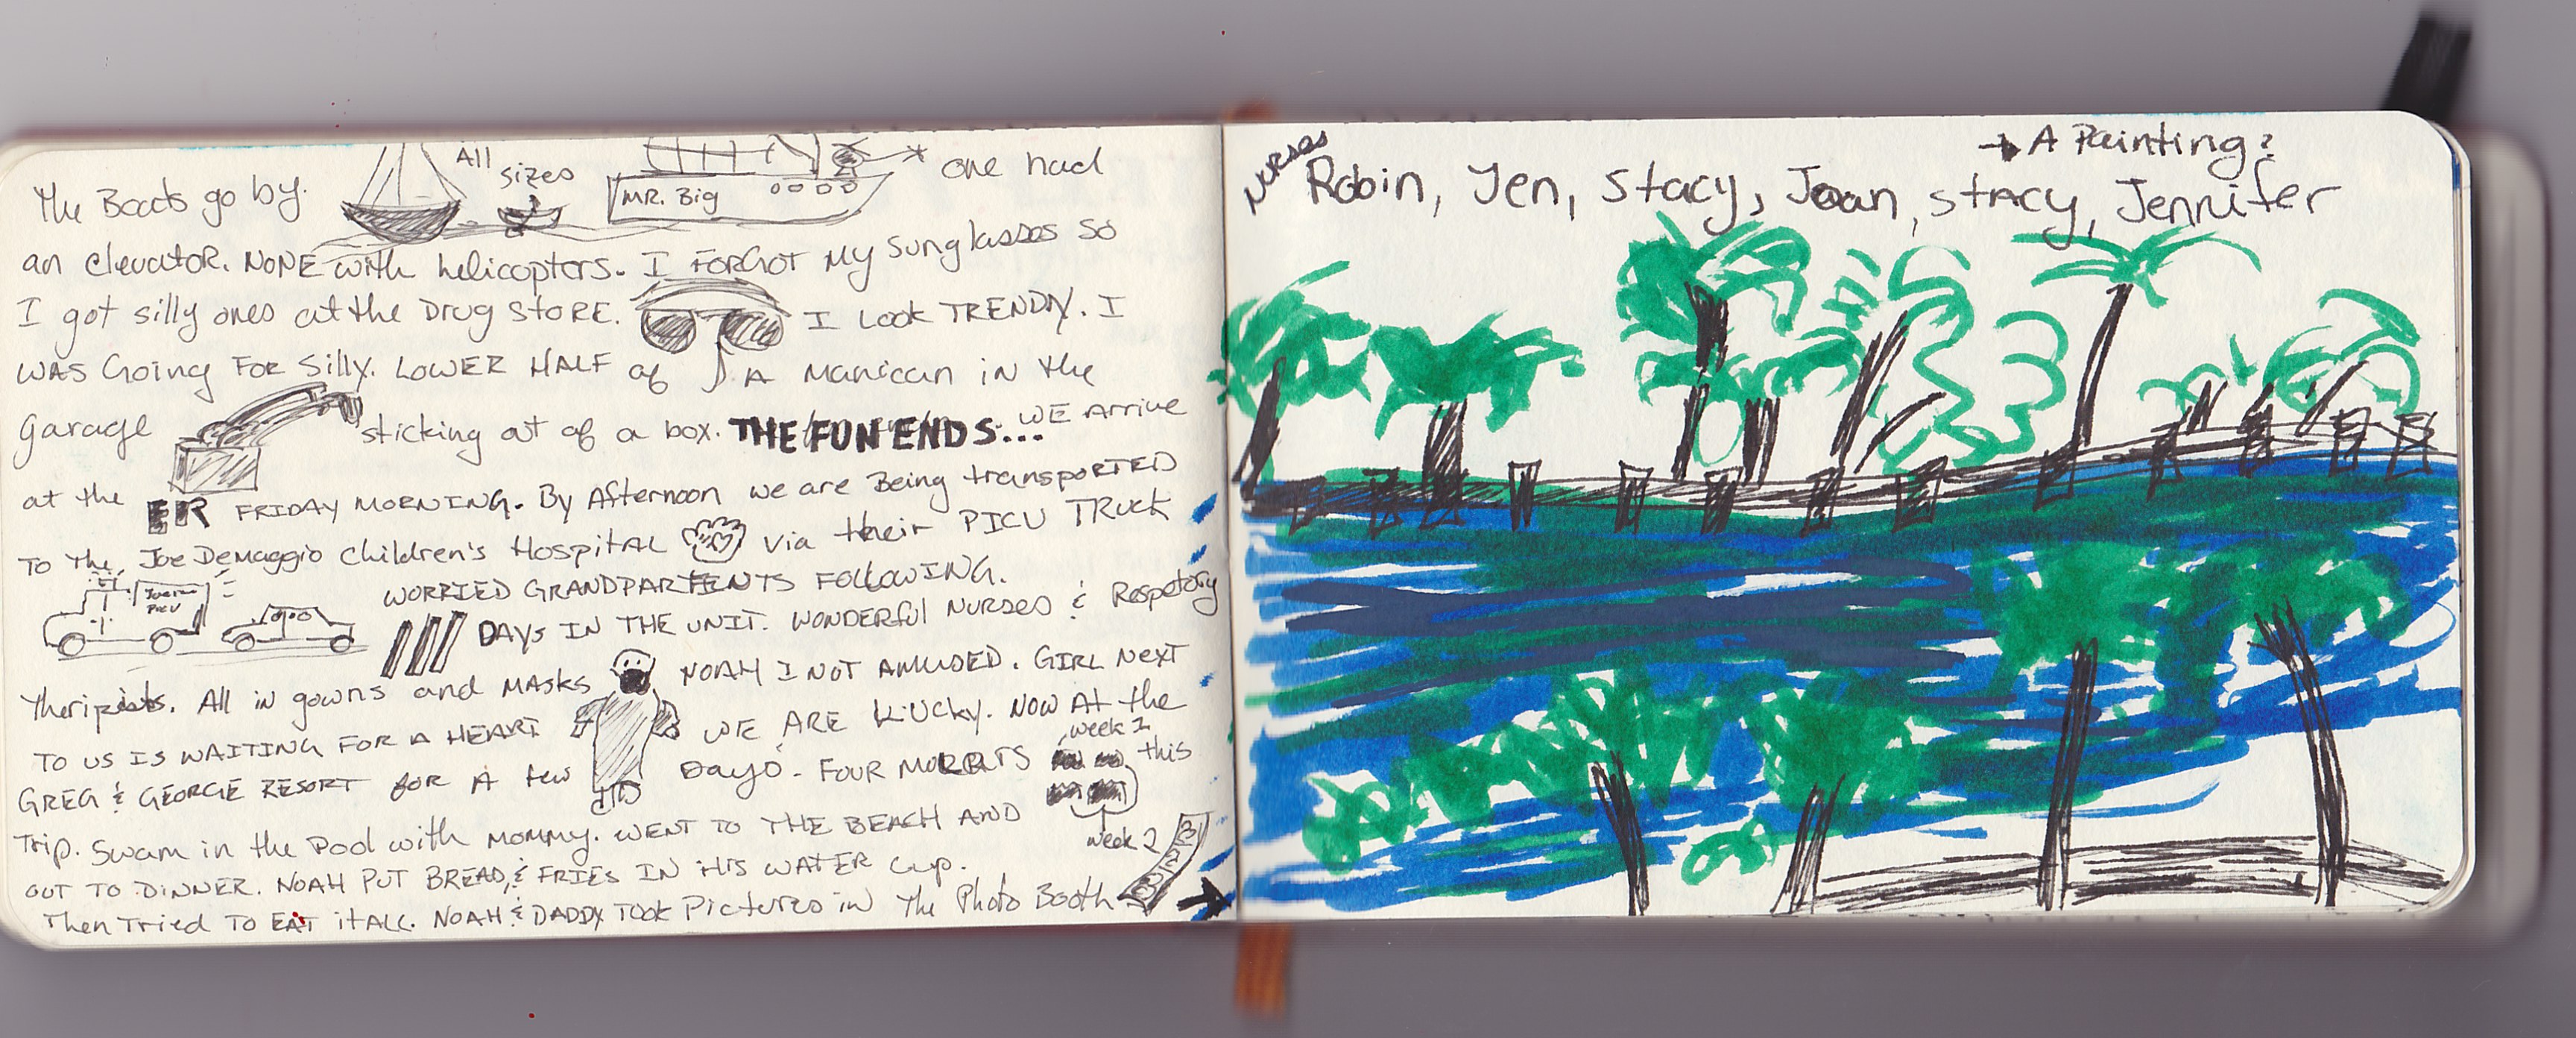 The Boats go by. All sizes MR. Big one had
an elevator. NONE with helicopters. I FORGOT My sunglasses so
I got silly ones at the Drug STORE. I Look TRENDY. I
WAS Going FOR Silly. LOWER HALF of A Manican in the
garage sticking out of a box. THE FUN ENDS... WE Arrive
at the ER FRIDAY MORNING. By Afternoon we are Being transported
TO The Joe DeMaggio Children's Hospital via their PICU TRuck
PICU WORRIED GRANDPARENTS FOLLOWING.
DAYS IN THE UNIT. WONDERFUL NURSES & Respetory
Theripists. All in gowns and MASKS NOAH I NOT AMUSED. GIRL NEXT
TO US IS WAITING FOR A HEART WE ARE LUCKY. NOW At the
GREG & GEORGE RESORT FOR A few Days. FOUR this
week 1
Trip. Swam in the Pool with mommy. WENT TO THE BEACH AND
week 2
OUT TO DINNER. NOAH PUT BREAD & FRIES IN HIS WATER Cup.
Then Tried TO EAT it ALL. NOAH & DADDY TOOK Pictures in The Photo Booth
→ A Painting?
NURSES Robin, Jen, Stacy, Joan, STACY, Jennifer